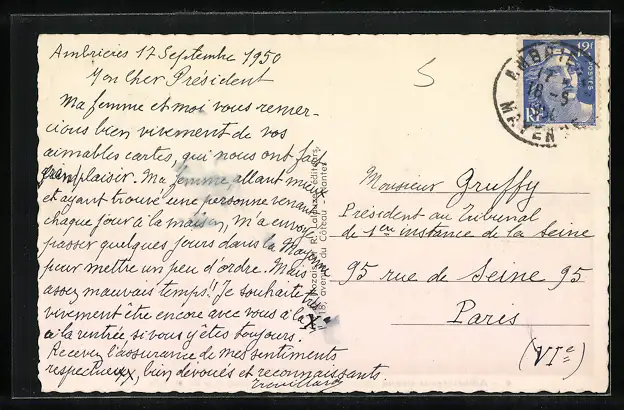 Ambrières 17 Septembre 1950
Mon Cher Président
Ma femme et moi vous remer-
cions bien vivement de vos
aimables cartes, qui nous ont fait
gran plaisir. Ma femme, allant mieux
et ayant trouvé une personne venant
chaque jour à la maison, m'a envoyé
passer quelques jours dans la Mayenne
pour mettre un peu d'ordre. Mais
assez mauvais temps!! Je souhaite très
vivement être encore avec vous à la Xe
à la rentrée si vous y êtes toujours.
Recevez l'assurance de mes sentiments
respectueux, bien dévoués et reconnaissants
5
12f
POSTES
RF
AMBRIERES
MAYENNE
éditeurs,
avenue du Coteau - Nantes
Monsieur Gruffy
Président au Tribunal
de 1ere instance de la Seine
95 rue de Seine 95
Paris
(VIe)